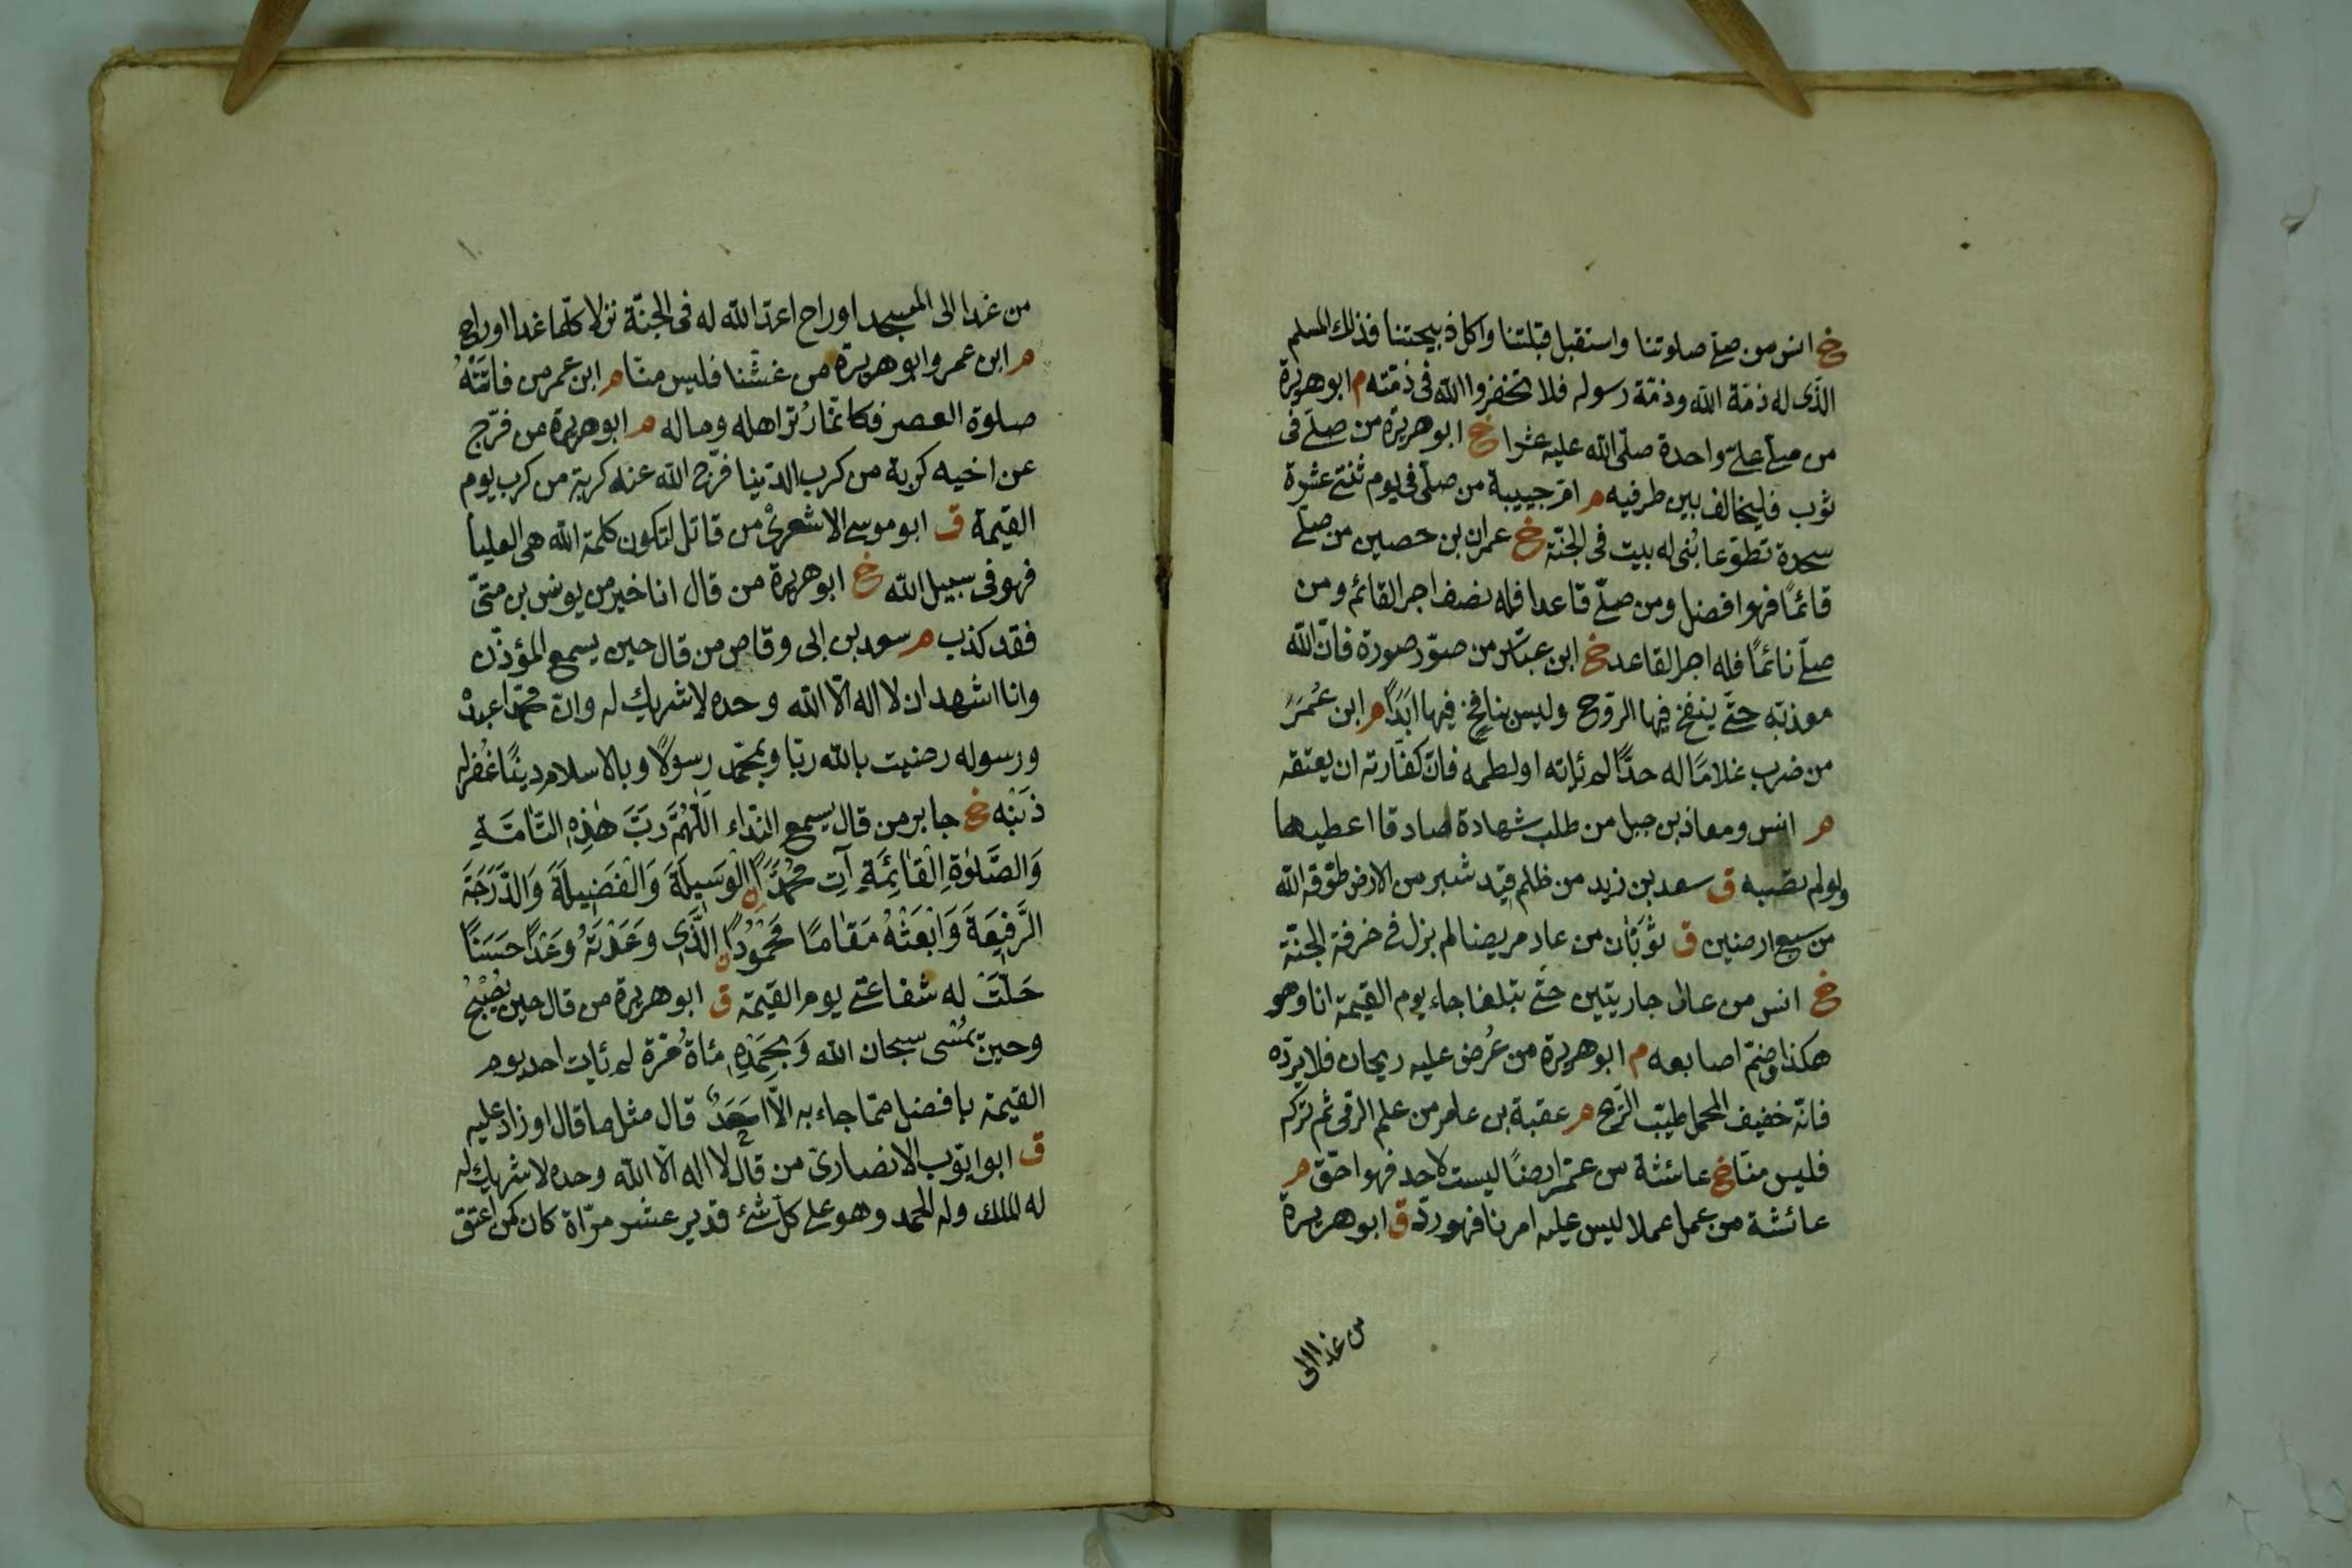 خ انس من صلّى صلوتنا واستقبل قبلتنا واكل ذبيحتنا فذلك المسلم
الّذى له ذمّة الله وذمّة رسوله فلا تخفروا الله فى ذمّته م ابو هريرة
من صلّى علىّ واحدة صلّى الله عليه عشرا خ ابو هريرة من صلّى فى
ثوب فليخالف بين طرفيه م امّ حبيبة من صلّى فى يوم ثنتى عشرة
سجدة تطوّعا بُنى له بيت فى الجنّة خ عمران بن حصين من صلّى
قائمًا فهو افضل ومن صلّى قاعدا فله نصف اجر القائم ومن
صلّى نائمًا فله اجر القاعد خ ابن عبّاس من صوّر صورة فانّ الله
معذبه حتّى ينفخ فيها الروح وليس بنافخ فيها ابدًا م ابن عُمَرَ
من ضرب غلامًا له حدًّا لم يأته او لطمه فانّ كفّارته ان يعتقه
م انس ومعاذ بن جبل من طلب شهادة صادقا اعطيها
ولو لم تصبه ق سعد بن زيد من ظلم قيد شبر من الارض طوّقه الله
من سبع ارضين ق ثوبَان من عاد مريضا لم يزل فى خرفة الجنّة
خ انس من عال جاريتين حتّى تبلغا جاء يوم القيمة انا وهو
هكذا وضمّ اصابعه م ابو هريرة من عُرض عليه ريحان فلا يردّه
فانّه خفيف المحمل طيّب الرّيح م عقبة بن عامر من علم الرمى ثم تركه
فليس منّا خ عائشة من عمّر ارضًا ليست لاحد فهو احقّ م
عائشة من عمل عملا ليس عليه امرنا فهو ردّ ق ابو هريرة
من غدا الى
من غدا الى المسجد او راح اعدّ الله له فى الجنّة نزلا كلّما غدا او راح
م ابن عمر وابو هريرة من غشّنا فليس منّا م ابن عمر من فاتتْهُ
صلوة العصر فكانّما وُتر اهله وماله م ابو هريرة من فرّج
عن اخيه كربة من كرب الدّنيا فرّج الله عنه كربة من كرب يوم
القيمة ق ابو موسى الاشعرىّ من قاتل لتكون كلمة الله هى العليا
فهو فى سبيل الله خ ابو هريرة من قال انا خير من يونس بن متىّ
فقد كذب م سعد بن ابى وقاص من قال حين يسمع المؤذّن
وانا اشهد ان لا اله الّا الله وحده لا شريك له وانّ محمّدا عبدهُ
ورسوله رضيت بالله ربّا وبمحمّد رسولًا وبالاسلام دينًا غُفر له
ذنبُه خ جابر من قال يسمع النّداء اَللّٰهُمَّ رَبَّ هٰذِهِ التَّامَّةِ
وَالصَّلٰوةِ الْقَائِمَةِ آتِ مُحَمَّدًا الْوَسِيلَةَ وَالْفَضِيلَةَ وَالدَّرَجَةَ
الرَّفِيعَةَ وَابْعَثْهُ مَقَامًا مَحْمُودًا الَّذِى وَعَدْتَهُ وَعْدًا حَسَنًا
حَلَّتْ له شفاعتى يوم القيمة ق ابو هريرة من قال حين يُصْبِحُ
وحين يُمْسى سبحان الله وَبِحَمْدِهِ مئاة مَرّة لم يأت احد يوم
القيمة بافضل ممّا جاء به الّا احَدٌ قال مثل ما قال او زاد عليه
ق ابو ايّوب الانصارىّ من قال لا اله الّا الله وحده لا شريك له
له الملك وله الحمد وهو على كلّ شئ قدير عشر مرّاة كان كمن اعتق